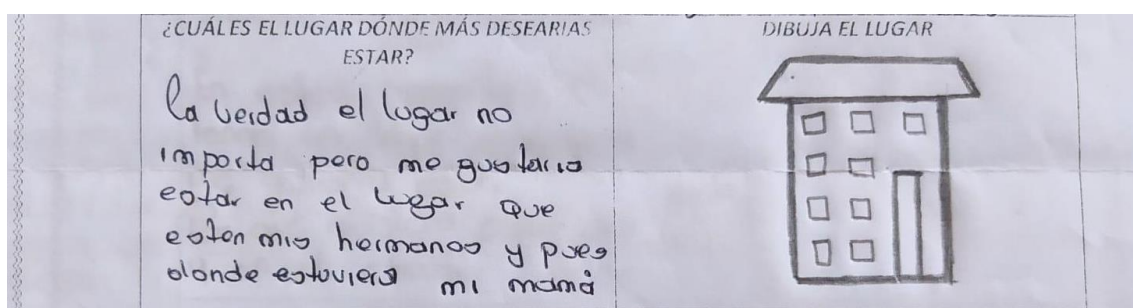 ¿CUÁL ES EL LUGAR DÓNDE MÁS DESEARIAS
ESTAR?
La verdad el lugar no
importa pero me gustaria
estar en el lugar que
esten mis hermanos y pues
donde estuviera mi mamá
DIBUJA EL LUGAR